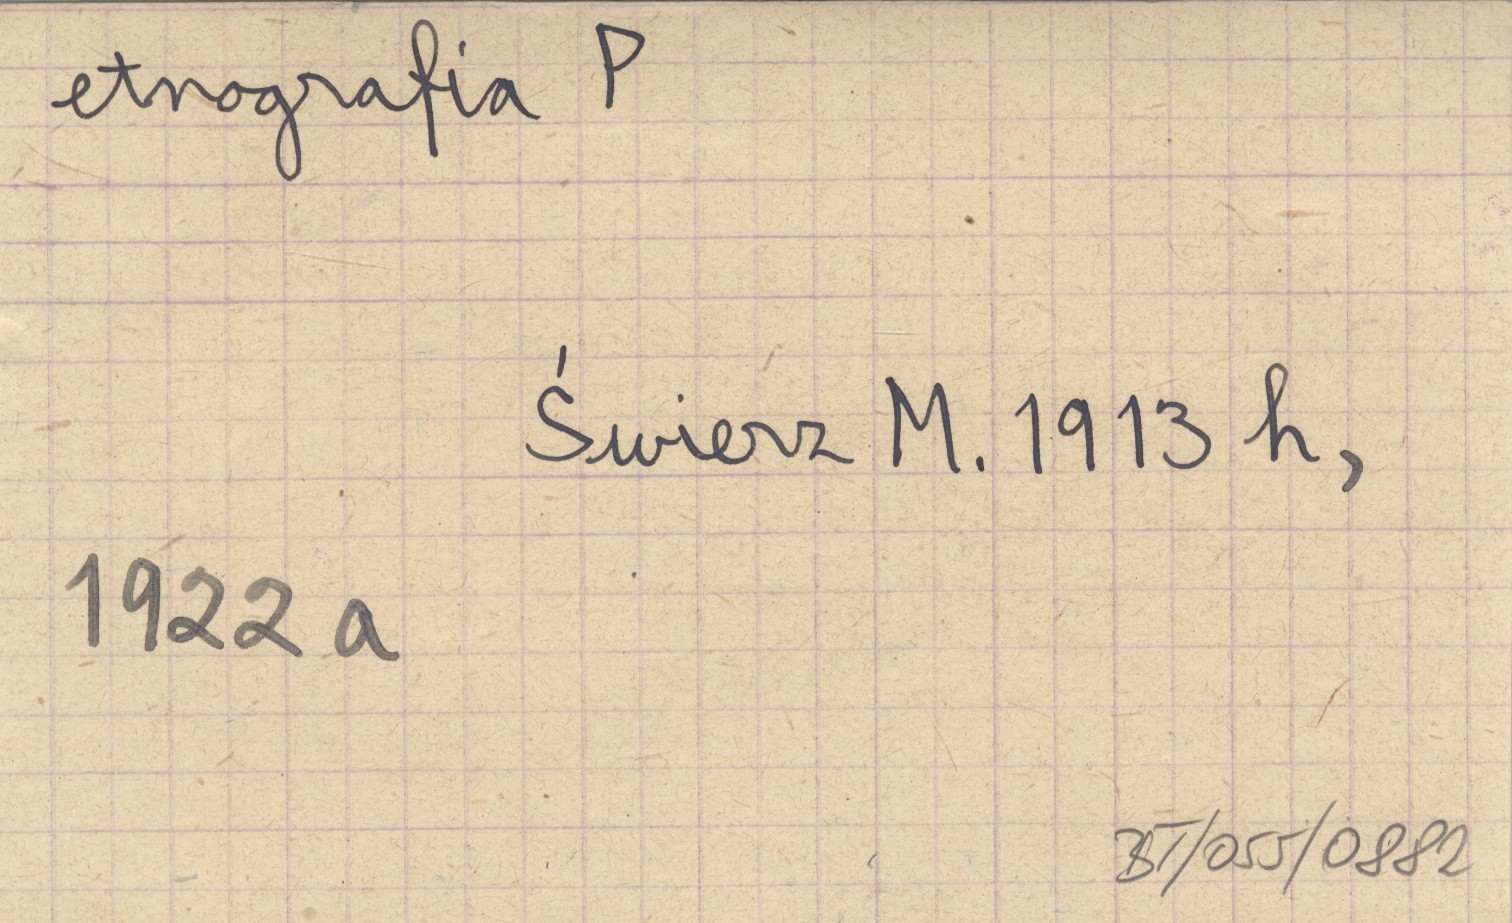 etnografia P
Świerz M. 1913 h,
1922 a
BT/055/0882